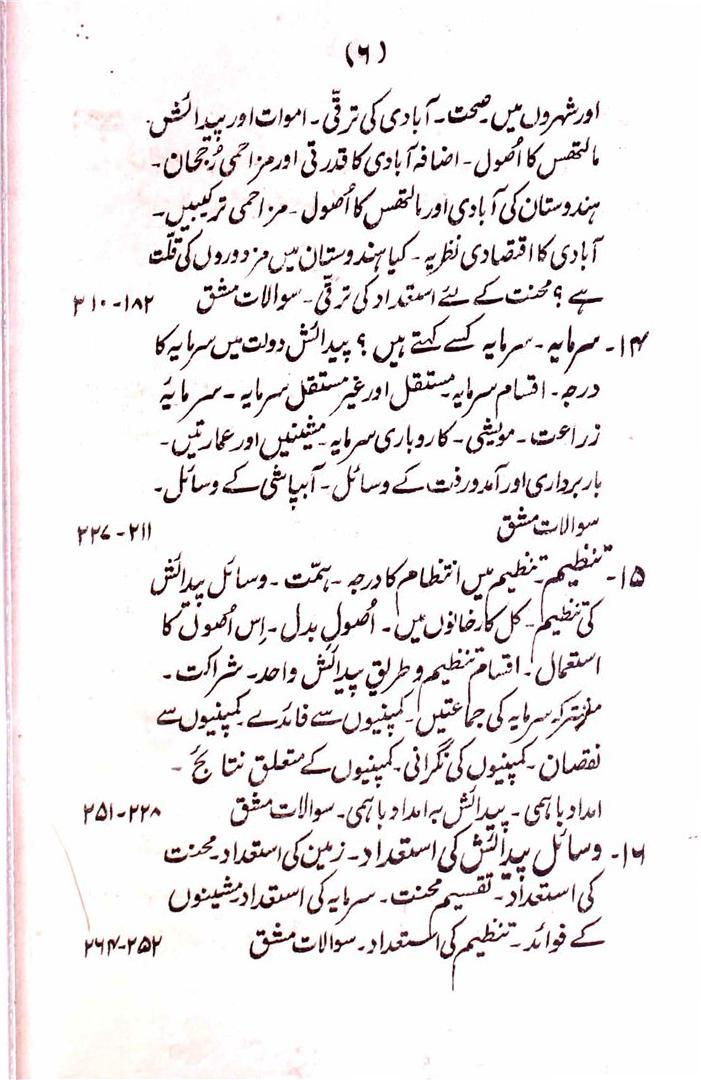 (۶)
اور شہروں میں صحت۔ آبادی کی ترقی۔ اموات اور پیدائش۔
مالتھس کا اُصول۔ اضافہ آبادی کا قدرتی اور مزاحمی رُجحان۔
ہندوستان کی آبادی اور مالتھس کا اُصول۔ مزاحمی ترکیبیں۔
آبادی کا اقتصادی نظریہ۔ کیا ہندوستان میں مزدوروں کی قلّت
ہے؟ محنت کے لئے استعداد کی ترقی۔ سوالات مشق ۱۸۲-۲۱۰
۱۴۔ سرمایہ۔ سرمایہ کسے کہتے ہیں؟ پیدائش دولت میں سرمایہ کا
درجہ۔ اقسام سرمایہ۔ مستقل اور غیر مستقل سرمایہ۔ سرمایۂ
زراعت۔ مویشی۔ کاروباری سرمایہ۔ مشینیں اور عمارتیں۔
باربرداری اور آمدورفت کے وسائل۔ آبپاشی کے وسائل۔
سوالات مشق ۲۱۱-۲۲۷
۱۵۔ تنظیم۔ تنظیم میں انتظام کا درجہ۔ ہمّت۔ وسائل پیدائش
کی تنظیم۔ کل کارخانوں میں۔ اُصول بدل۔ اِس اُصول کا
استعمال۔ اقسام تنظیم و طریق پیدائش واحد۔ شراکت۔
مشترکہ سرمایہ کی جماعتیں۔ کمپنیوں سے فائدے۔ کمپنیوں سے
نقصان۔ کمپنیوں کی نگرانی۔ کمپنیوں کے متعلق نتائج۔
امداد باہمی۔ پیدائش بہ امداد باہمی۔ سوالات مشق ۲۲۸-۲۵۱
۱۶۔ وسائل پیدائش کی استعداد۔ زمین کی استعداد۔ محنت
کی استعداد۔ تقسیم محنت۔ سرمایہ کی استعداد۔ مشینوں
کے فوائد۔ تنظیم کی استعداد۔ سوالات مشق ۲۵۲-۲۶۴